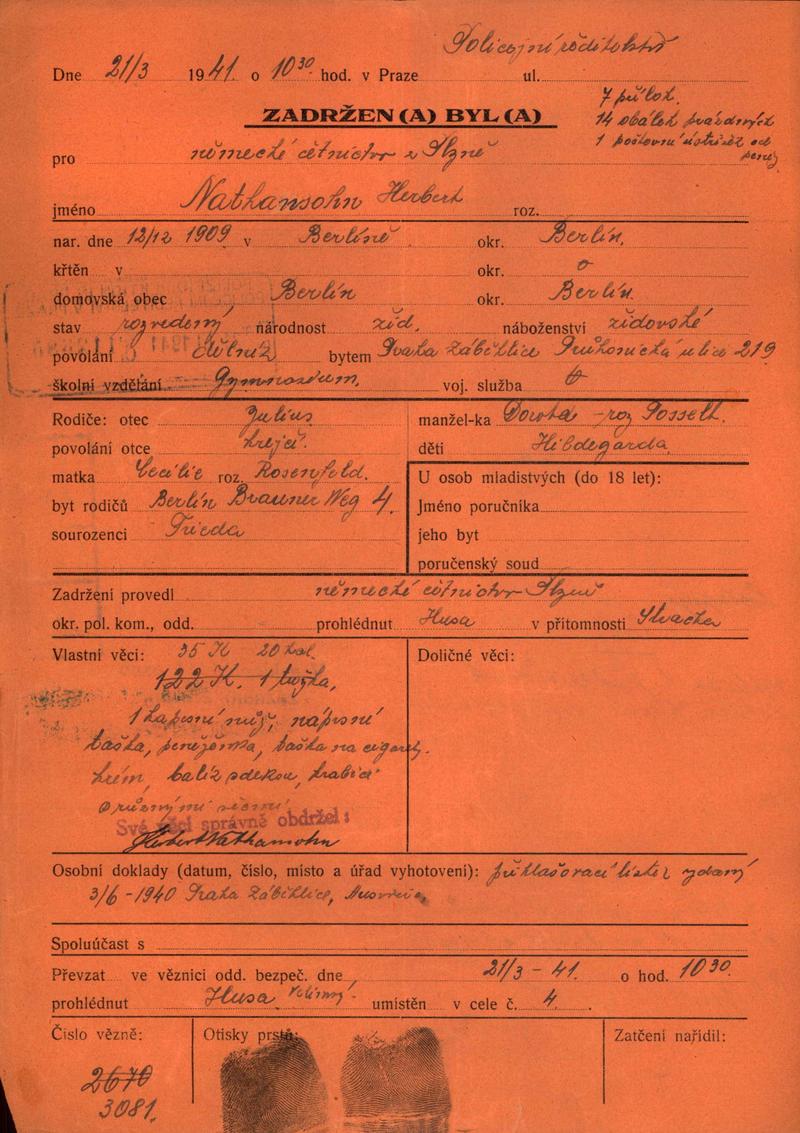 Policejní ředitelství
Dne 21/3 1941. o 10 30 hod. v Praze ul.
ZADRŽEN(A) BYL(A)
7 půlok.
14 obálek prázdných
1 poštovní ústřižek od peněz
pro německé četnictvo v Plzně
jméno Nathansohn Herbert roz.
nar. dne 12/12 1909 v Berlíně okr. Berlín,
křtěn v okr. 0
domovská obec Berlín okr. Berlín.
stav rozvedený národnost žid. náboženství židovské
povolání dělník bytem Praha Záběhlice Průhonická ulice 219
školní vzdělání Gymnasium, voj. služba 0
Rodiče: otec Julius manžel-ka Dorota roz Posselt.
povolání otce krejčí. děti Hildegarda
matka Cecílie roz. Rosenfeld. U osob mladistvých (do 18 let):
byt rodičů Berlín Brauner Weg 4. Jméno poručníka
sourozenci Frieda jeho byt
poručenský soud
Zadržení provedl německé četnictvo Plzeň
okr. pol. kom., odd. prohlédnut Husa v přítomnosti
Vlastní věci: 35 K 20 hal. Doličné věci:
122 K. 1 tužka,
1 kapesní nůž, nápisní
taška, peněženka, taška na cigarety.
krém, balík s dekou, krabice
s různými věcmi
Své věci správně obdržel:
Herbert Nathansohn
Osobní doklady (datum, číslo, místo a úřad vyhotovení): přihlašovací lístek vydaný
3/6 - 1940 Praha Záběhlice,
Spoluúčast s
Převzat ve věznici odd. bezpeč. dne 21/3 - 41. o hod. 10 30.
prohlédnut Husa umístěn v cele č. 4.
Číslo vězně: Otisky prstů: Zatčení nařídil:
2670
3081.